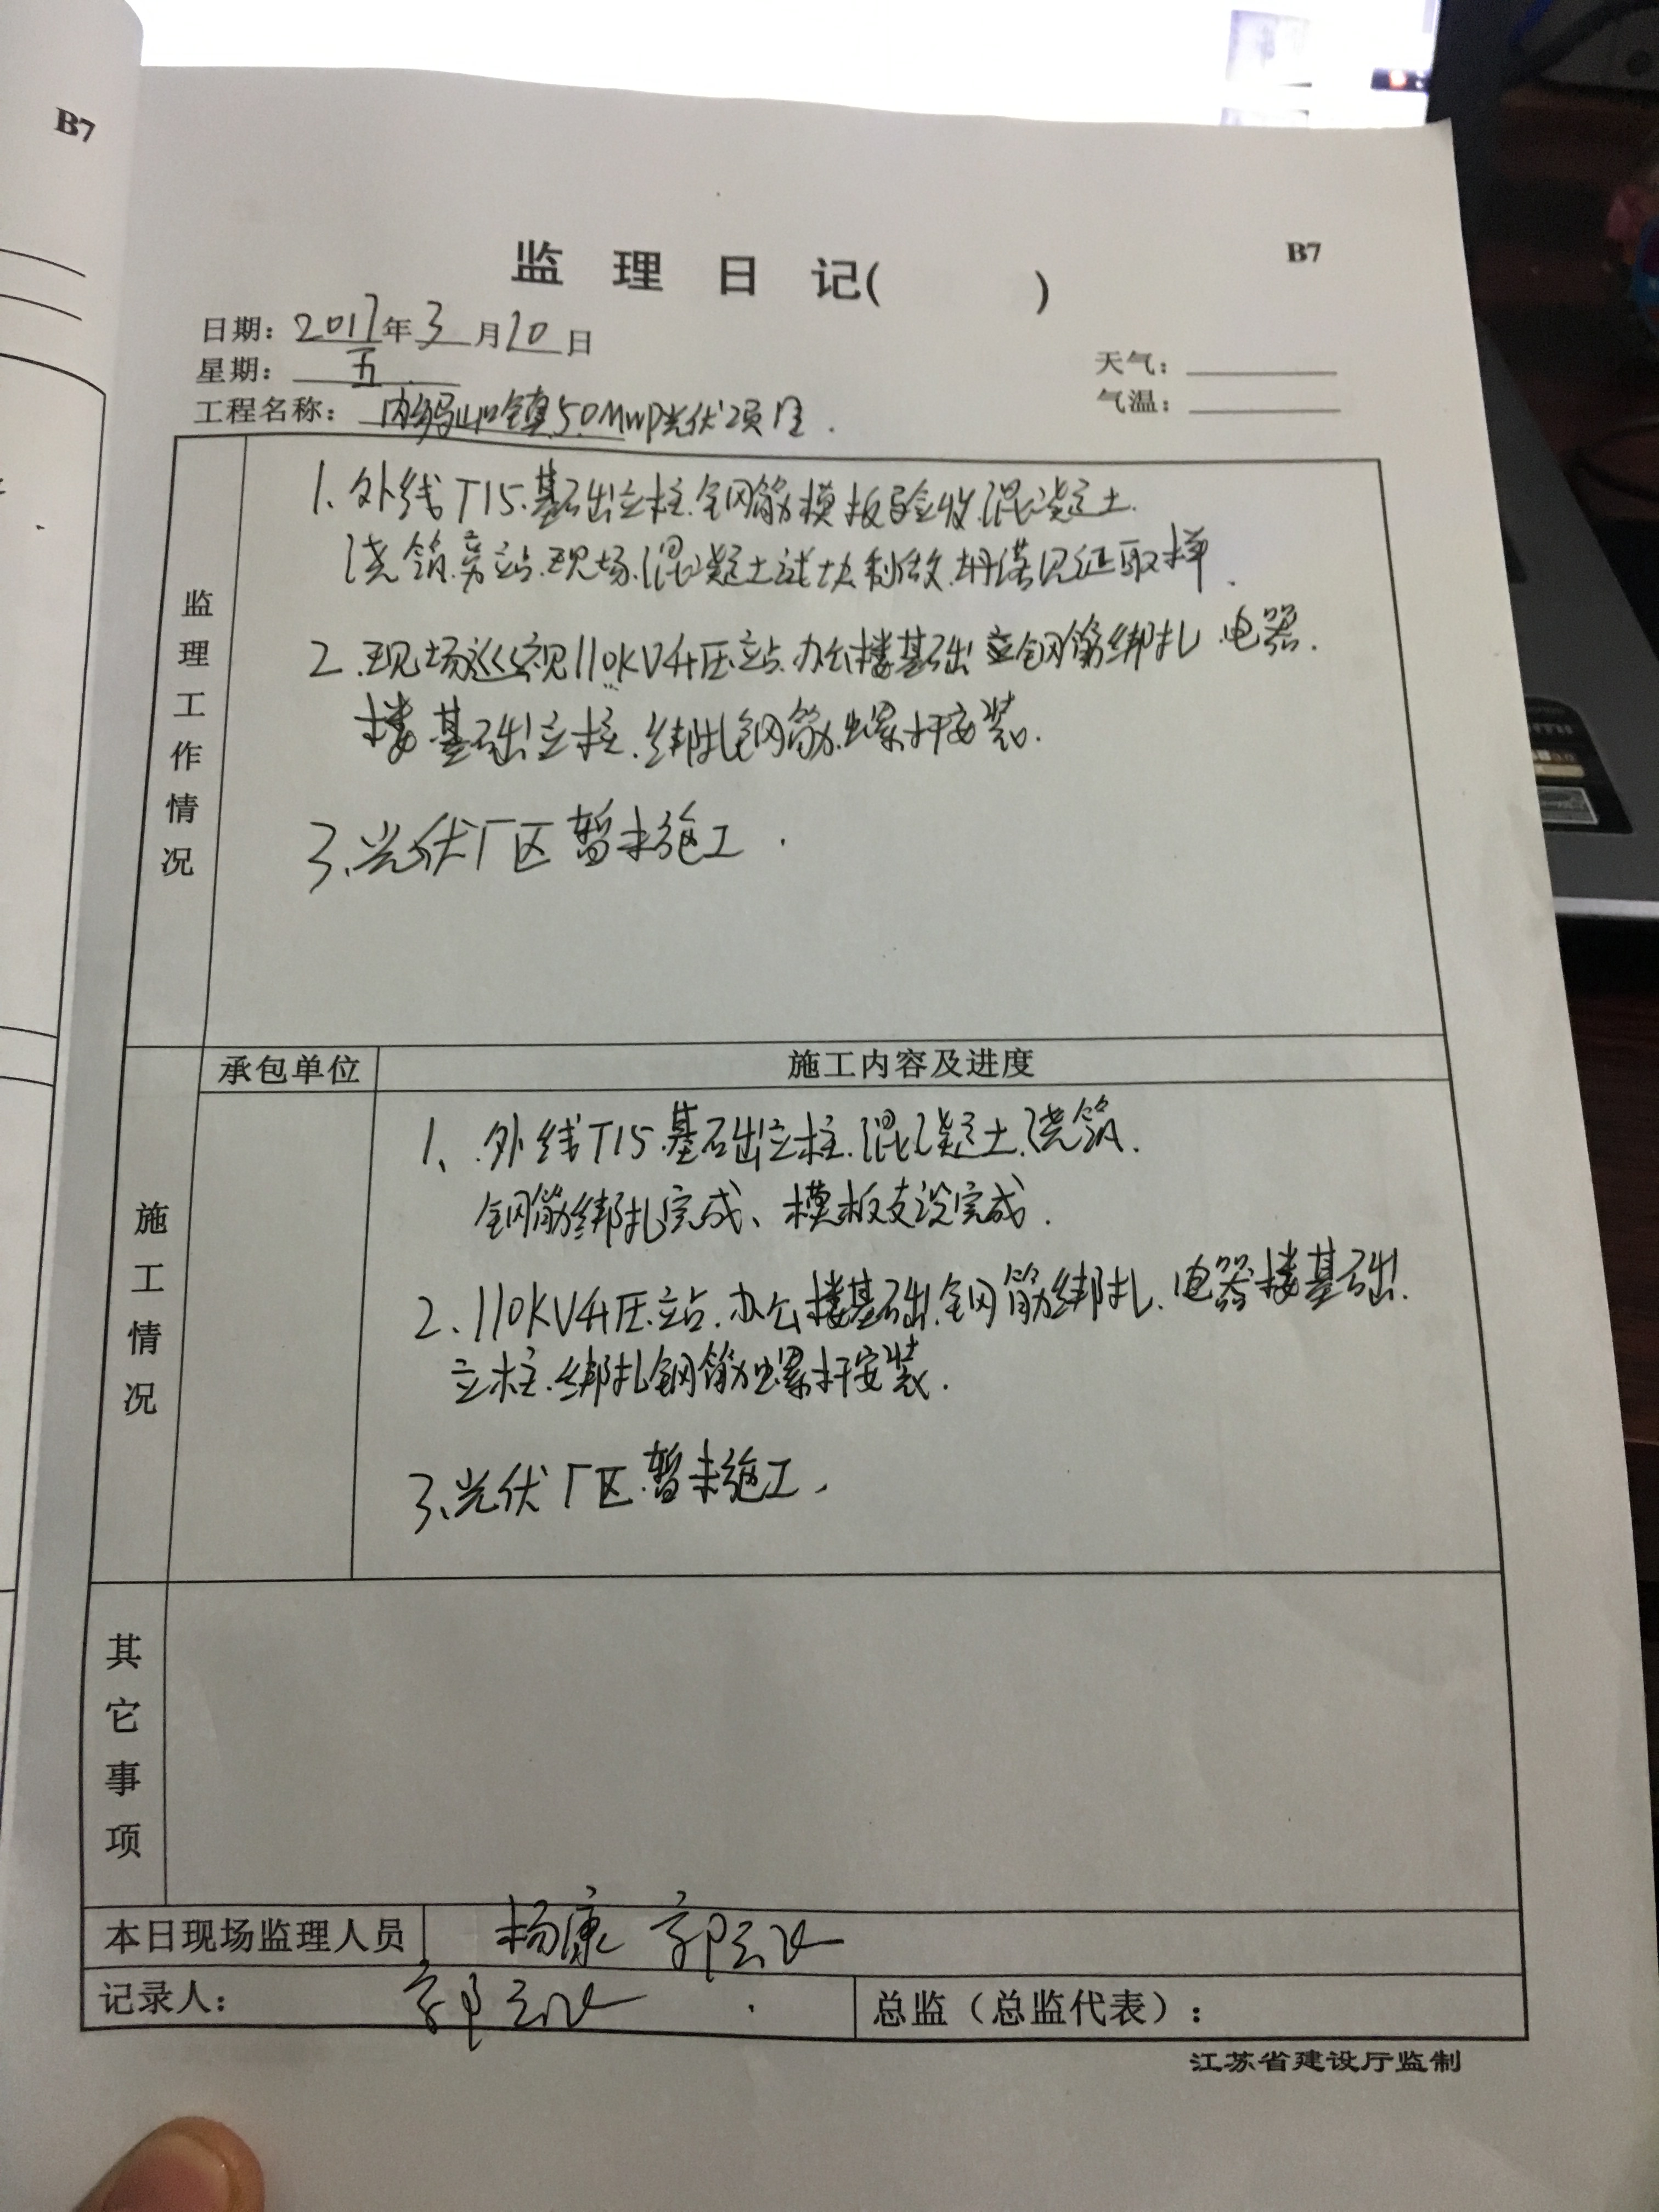 B7
B7
监理日记( )
日期：2017年3月10日
星期：五
天气：
工程名称：内 山口镇50MWp光伏项目.
气温：
监理工作情况
1.外线T15.基础立柱.钢筋模板验收.混凝土.
浇筑.旁站.现场.混凝土试块制做.见证取样.
2.现场巡视110KV升压站.办公楼基础 立钢筋绑扎.电器.
楼.基础立柱.绑扎钢筋.螺杆安装.
3、光伏厂区暂未施工.
承包单位
施工内容及进度
施工情况
1、外线T15.基础立柱.混凝土.浇筑.
钢筋绑扎完成、模板支设完成.
2、110KV升压站.办公楼基础.钢筋绑扎.电器楼基础.
立柱.绑扎钢筋螺杆安装.
3、光伏厂区.暂未施工.
其它事项
本日现场监理人员 杨康 郭
记录人： 郭
总监（总监代表）：
江苏省建设厅监制